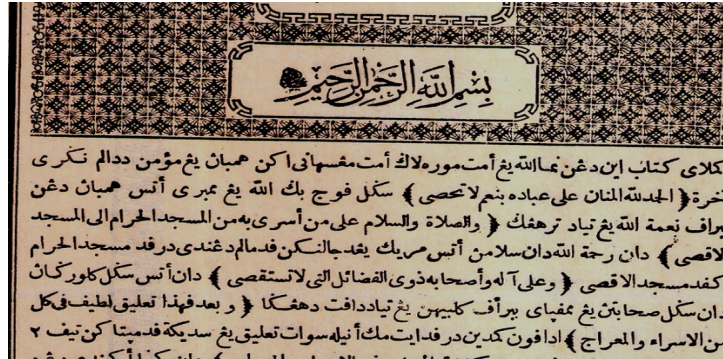 بسم الله الرحمن الرحيم
كملاى كتاب اين دغن نما الله يغ أمت موره لاڬ أمت مڠسهاني اكن همبان يغ مؤمن ددالم نڬري
خرة ﴿ الحمد لله المنان على عباده بنعم لا تحصى ﴾ سكل فوج بڬ الله يغ ممبري أتس همبان دغن
براف نعمة الله يغ تياد ترهڠڬ ﴿ والصلاة والسلام على من أسرى به من المسجد الحرام الى المسجد
لاقصى ﴾ دان رحمة الله دان سلامن أتس مريك يڠد جالنكن قد مالم دغندى درقد مسجد الحرام
كفد مسجد الاقصى ﴿ وعلى آله وأصحابه ذوى الفضائل التى لا تستقصى ﴾ دان أتس سكل كلوركان
دان سكل صحابتن يغ ممفياى ببرأف كليبهن يغ تياد دافت دهڠڬا ﴿ و بعد فهذا تعليق لطيف فى كل
من الاسراء والمعراج ﴾ ادافون كمدين درفد ايت مك أنيله سوات تعليق يغ سديكة قد مپتاكن تيف ٢